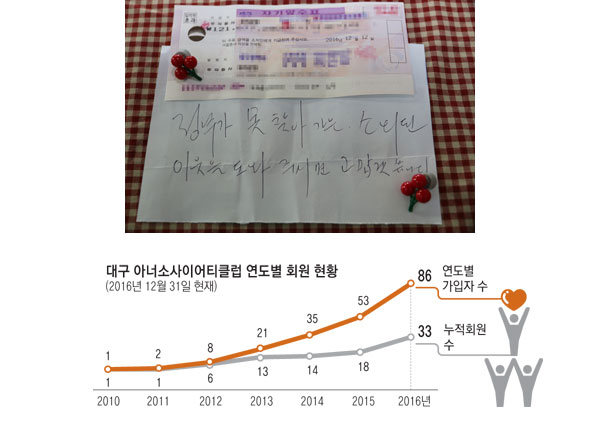 자기앞수표
정부가 못 찾아 가는 소외된
이웃을 도와 주시면 고맙겠습니다
대구 아너소사이어티클럽 연도별 회원 현황
(2016년 12월 31일 현재)
86
연도별
가입자 수
53
35
21
8
2
1
33
누적회원
수
1
1
6
13
14
18
2010
2011
2012
2013
2014
2015
2016년